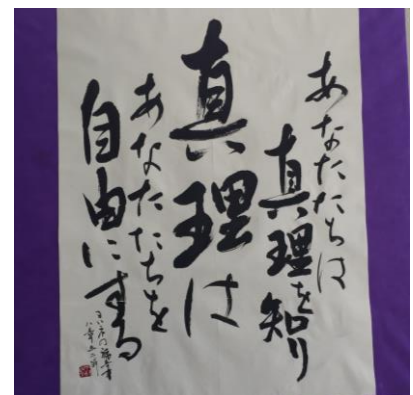 あなたたちは
真理を知り
真理は
あなたたちを
自由にする